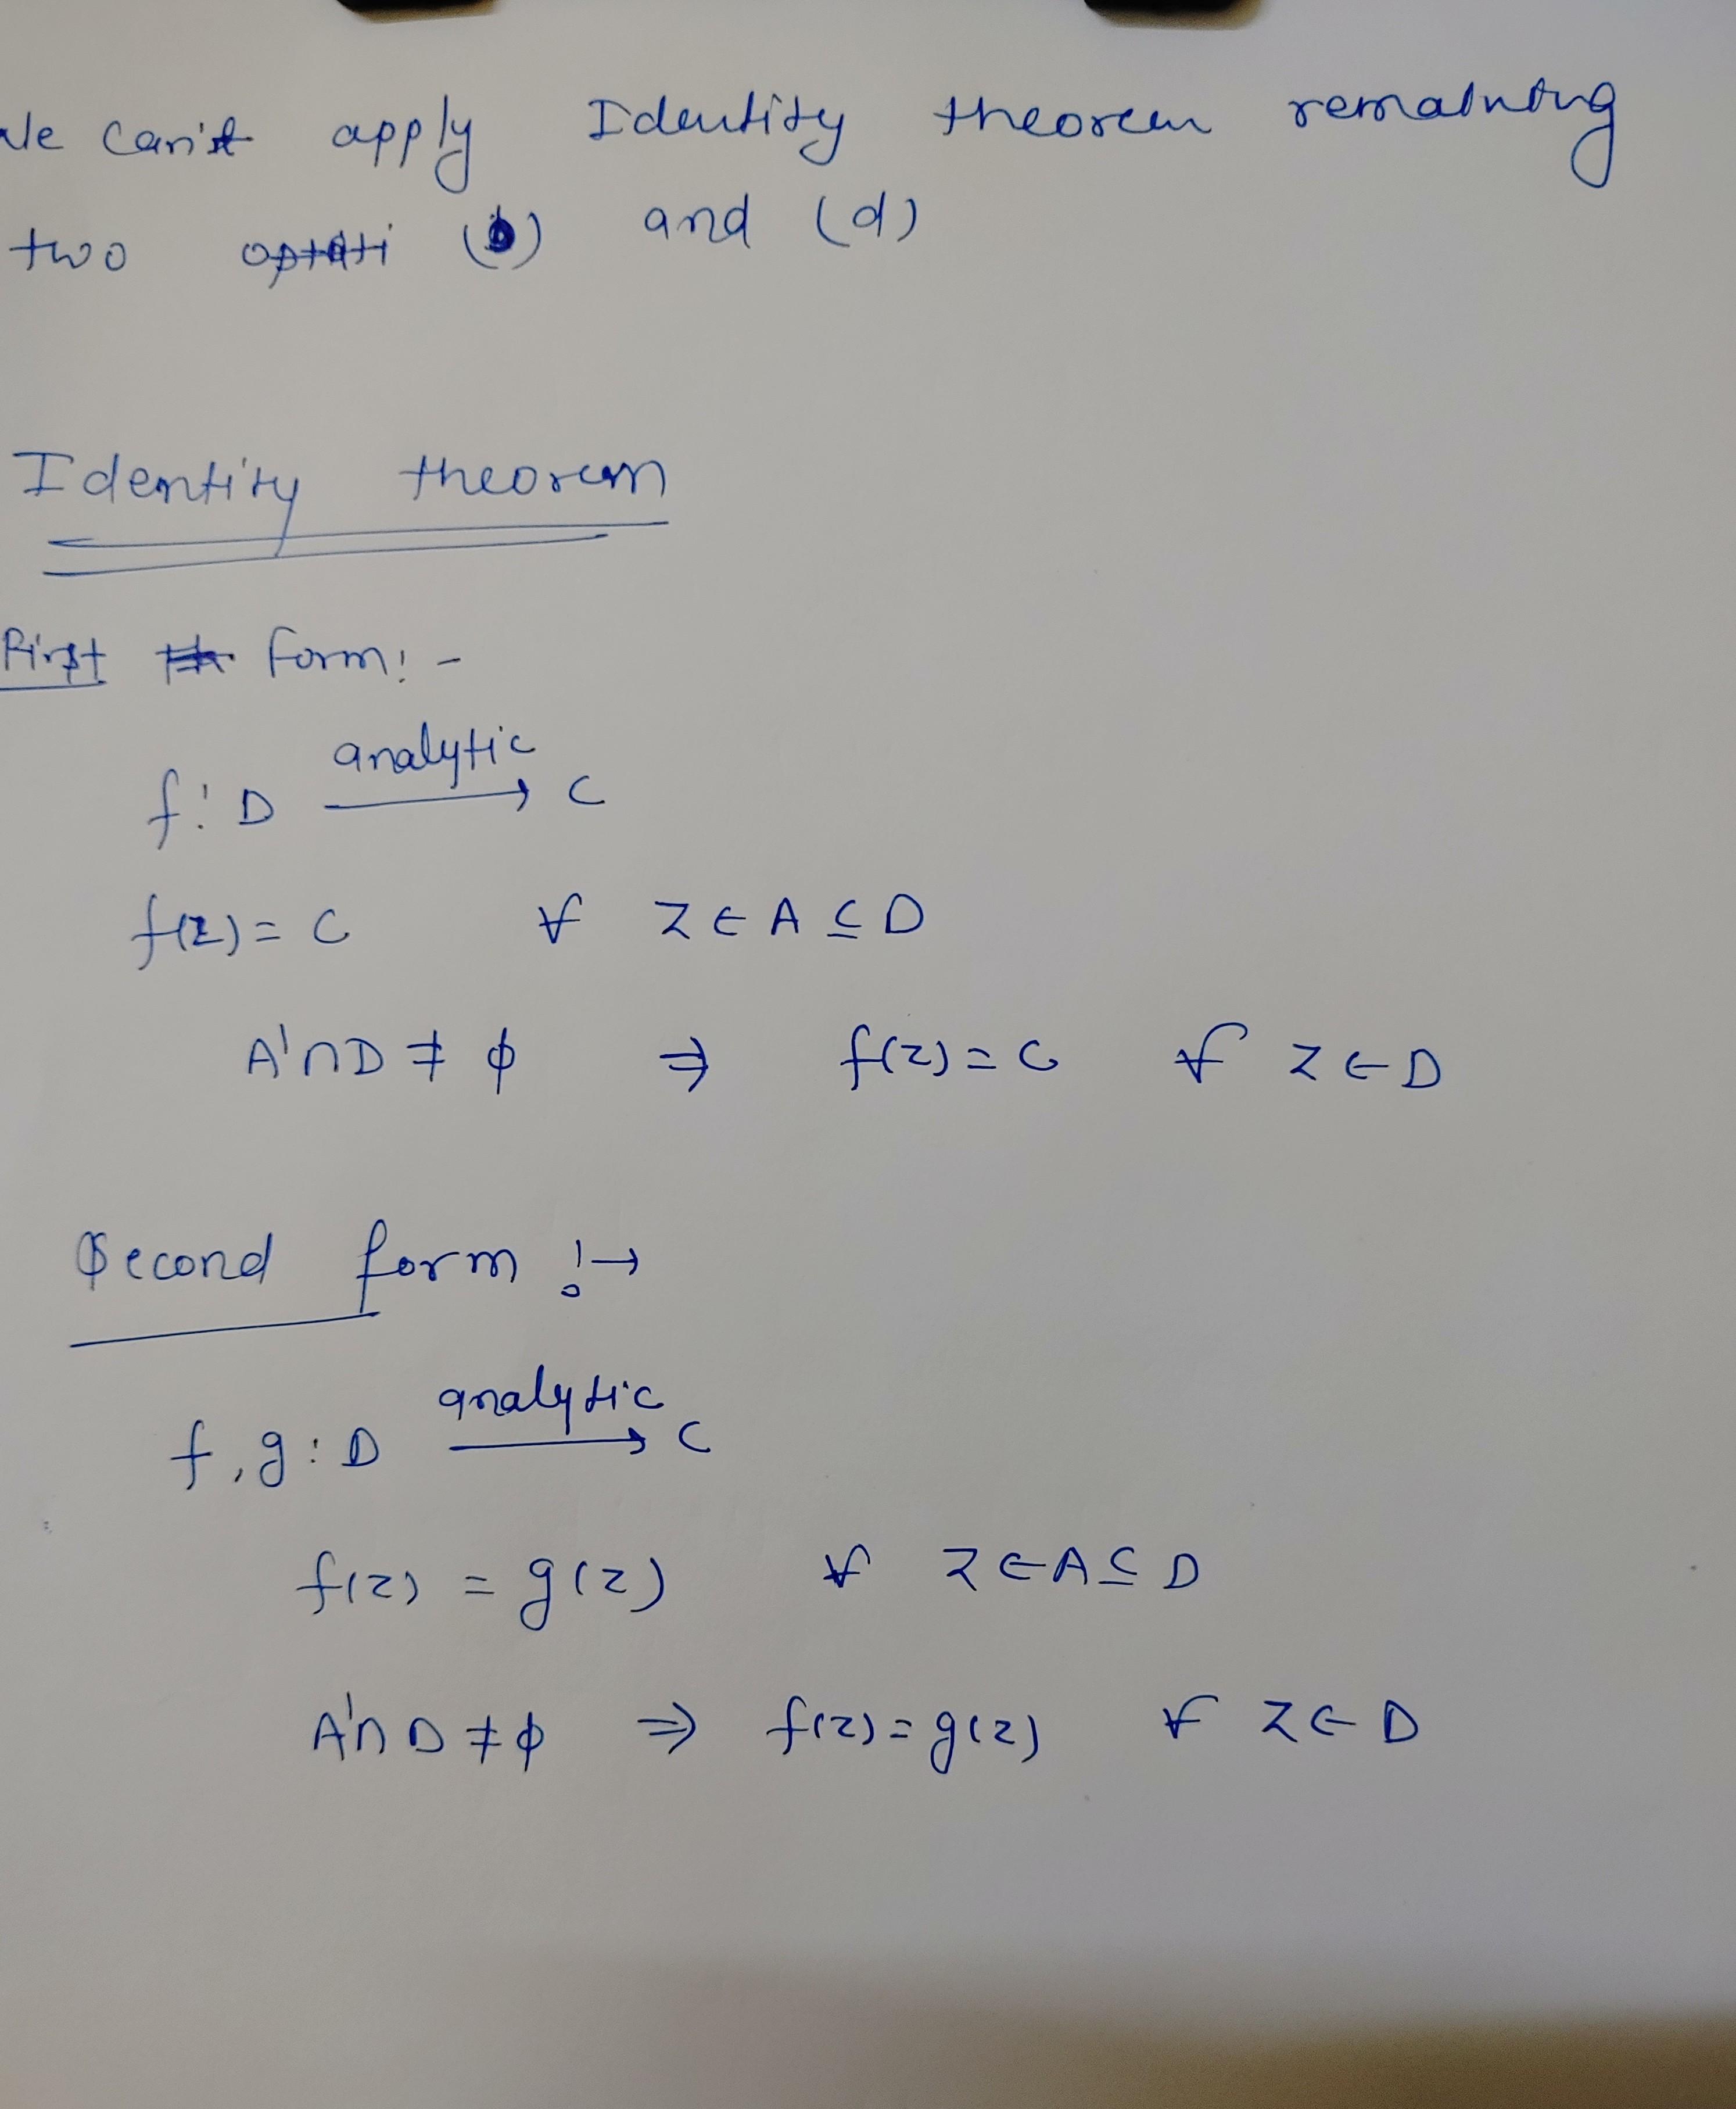 We can't apply Identity theorem remaining
two (b) and (d)
Identity theorem
First form:-
analytic
f: D → C
f(z) = C ∀ z ∈ A ⊆ D
A' ∩ D ≠ ϕ ⇒ f(z) = C ∀ z ∈ D
Second form :→
analytic
f, g : D → C
f(z) = g(z) ∀ z ∈ A ⊆ D
A' ∩ D ≠ ϕ ⇒ f(z) = g(z) ∀ z ∈ D